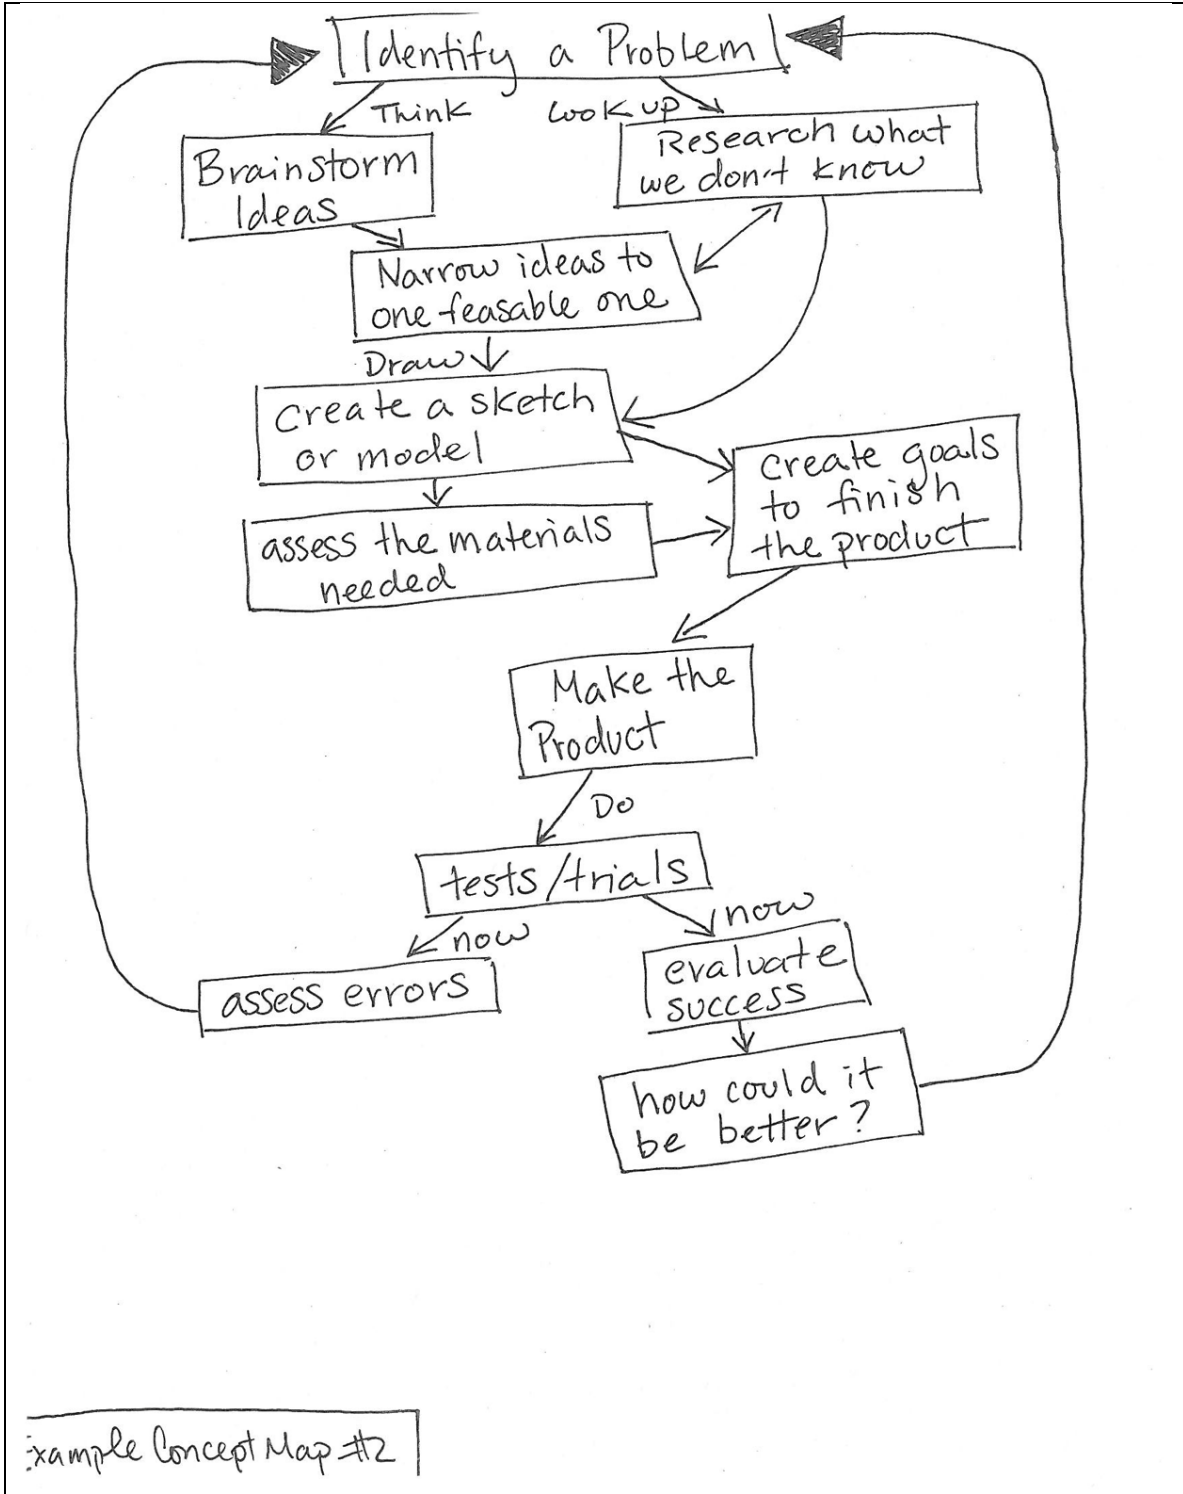 Identify a Problem
Think
Look up
Brainstorm
Ideas
Research what
we don't know
Narrow ideas to
one feasable one
Draw
Create a sketch
or model
Create goals
to finish
the product
assess the materials
needed
Make the
Product
Do
tests/trials
now
now
assess errors
evaluate
success
how could it
be better?
Example Concept Map #2